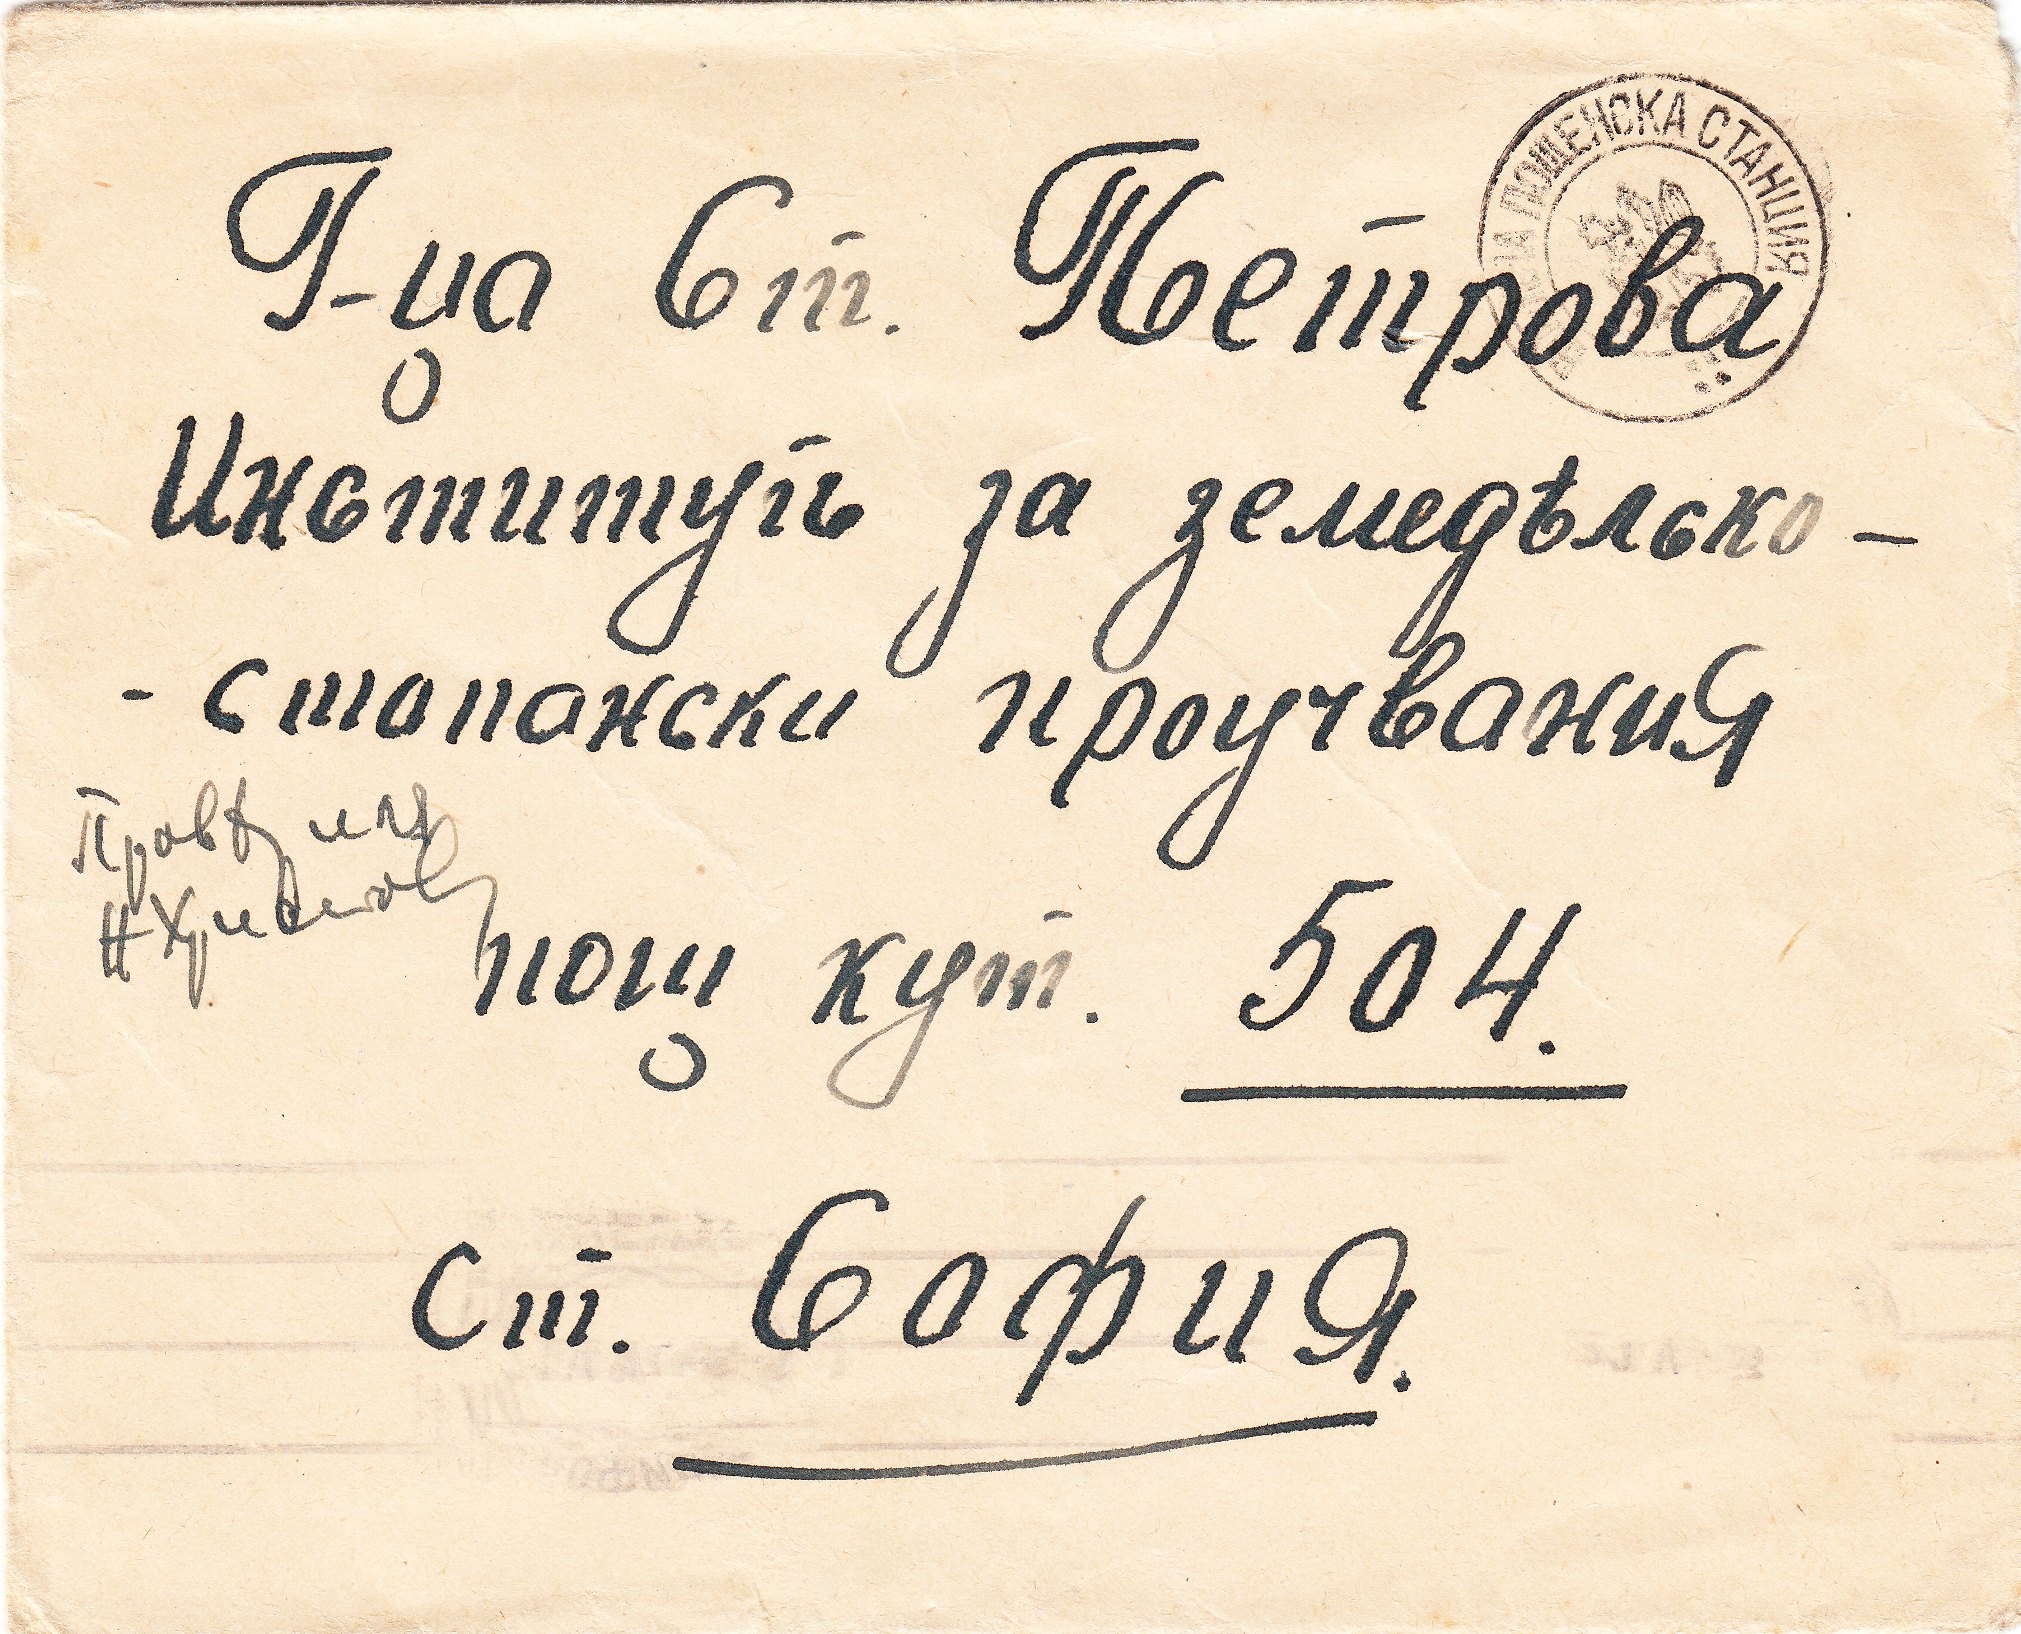 ПОЩЕНСКА СТАНЦИЯ
Г-ца Ст. Петрова
Институтъ за земедѣлско-
-стопански проучвания
Провѣрил
Н Христов
пощ кут. 504.
ст. София.